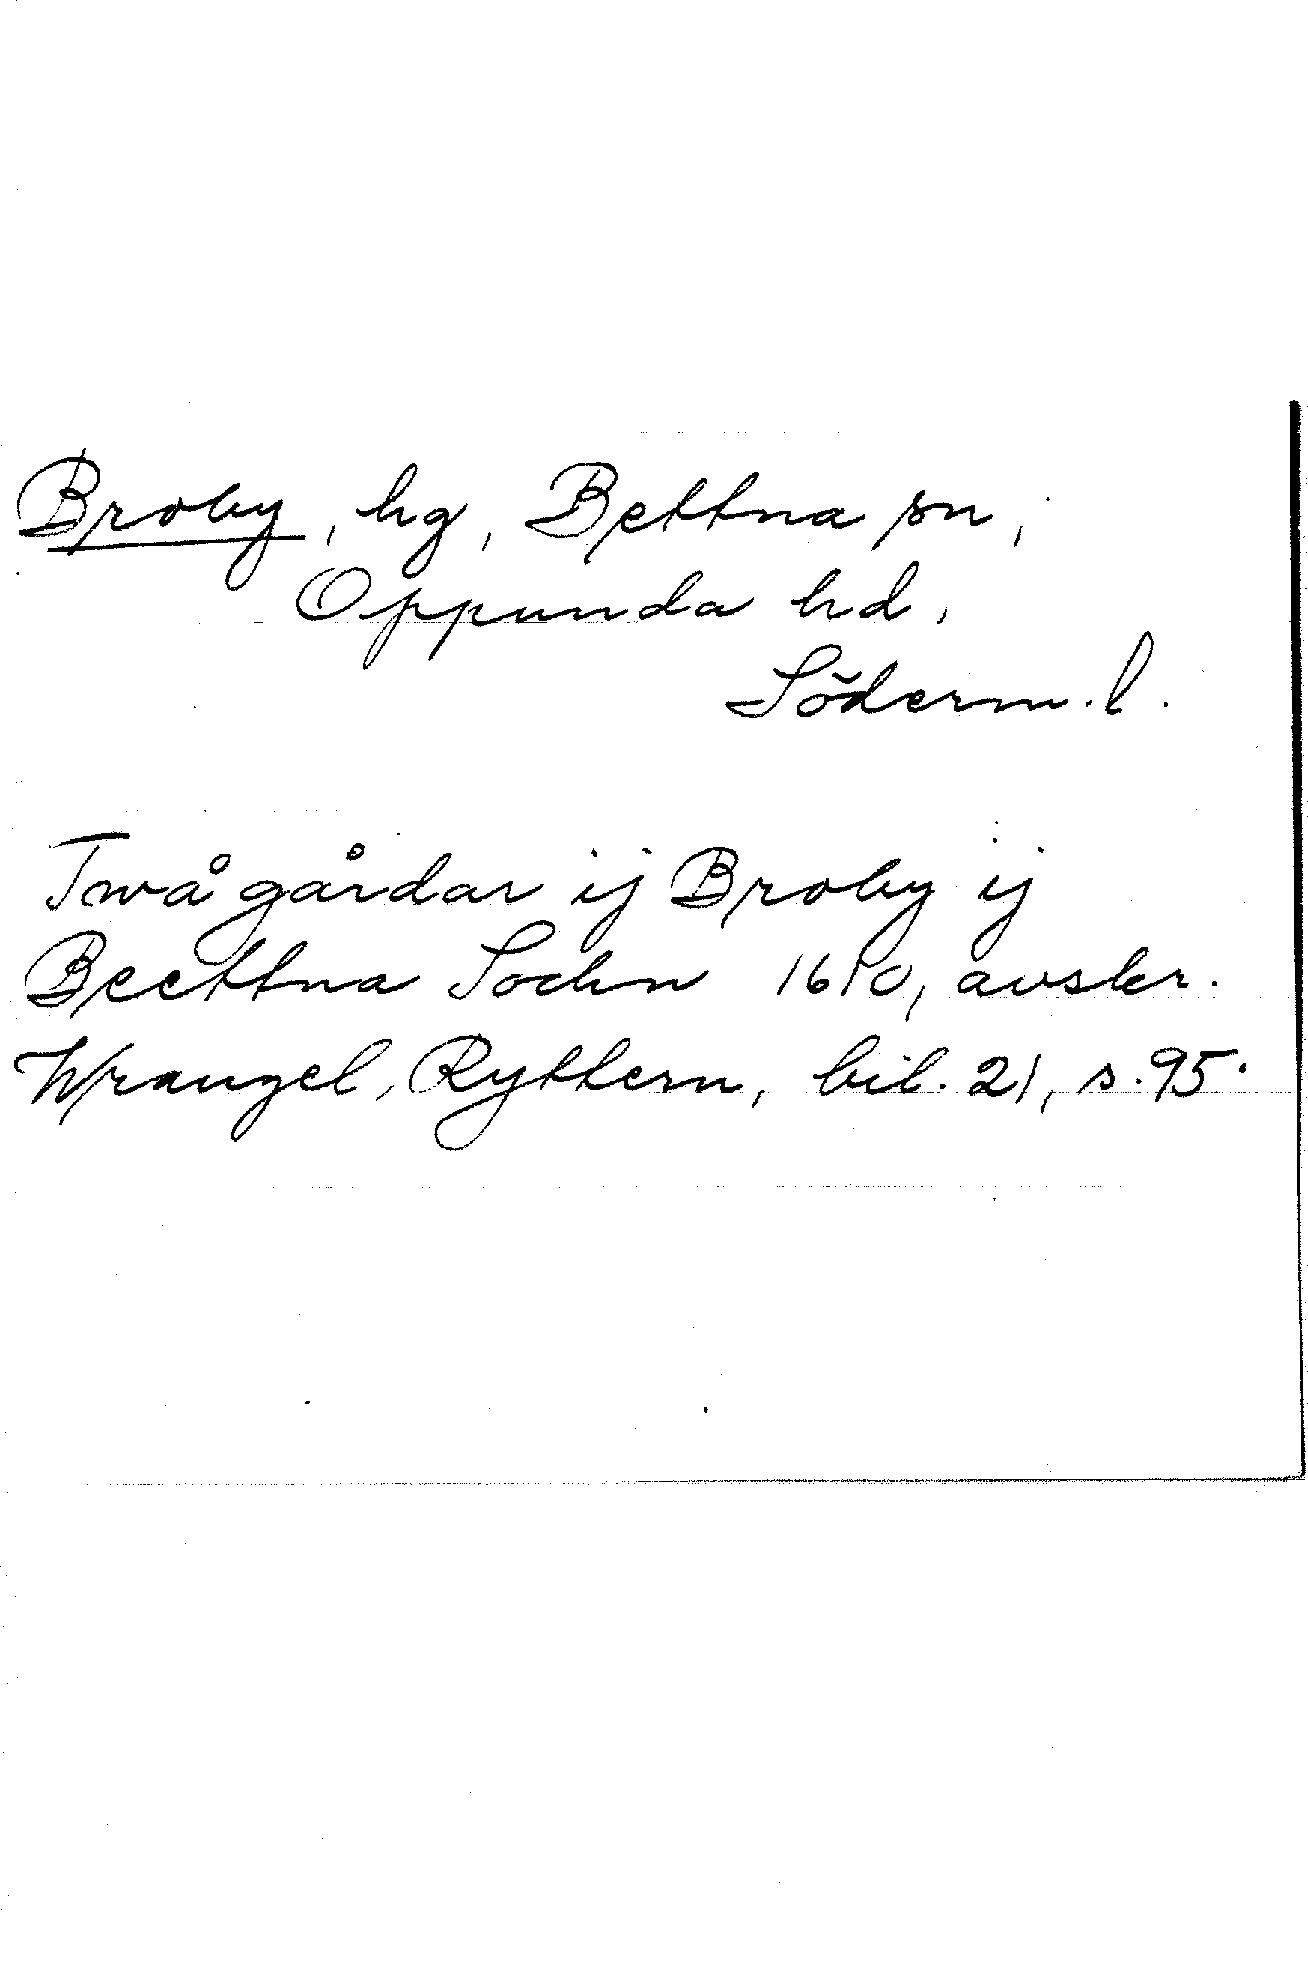 Broby, hg, Bettna sn,
Oppunda hd,
Söderm.l.
Twå gårdar ij Broby ij
Beettna Sochn 1610, avskr.
Wrangel, Ryttern, bil. 21, s. 95.